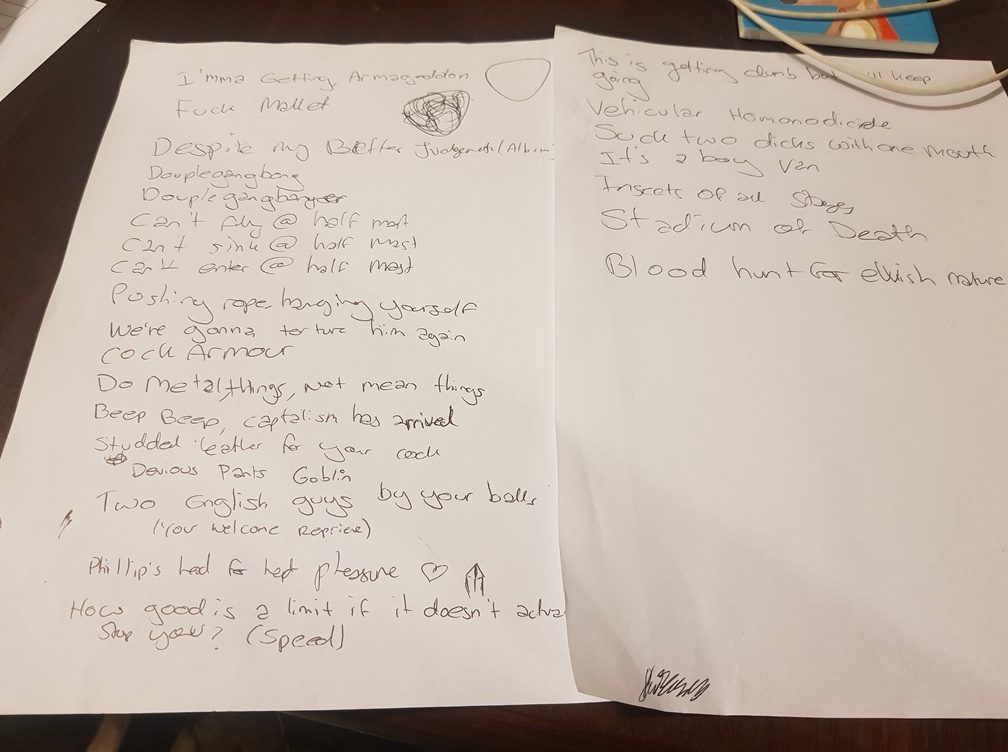 I'mma Getting Armageddon
Fuck Mallet
Despite my Better Judgement (Album
Douplegangbang
Douplegangbanger
Can't fly @ half mast
Can't sink @ half mast
Can't enter @ half mast
Pushing rope, hanging yourself
We're gonna torture him again
Cock Armour
Do Metal things, not mean things
Beep Beep, captalism has arrived
Studded leather for your cock
Devious Pants Goblin
Two English guys by your balls
(Your welcome Reprieve)
Phillip's head for
How good is a limit if it doesn't actua
Stop you? (Speed)
This is getting dumb keep
going
Vehicular Homonodicide
Suck two dicks with one mouth
It's a boy Van
Insects of all Stages
Stadium of Death
Blood hunt for elvish nature